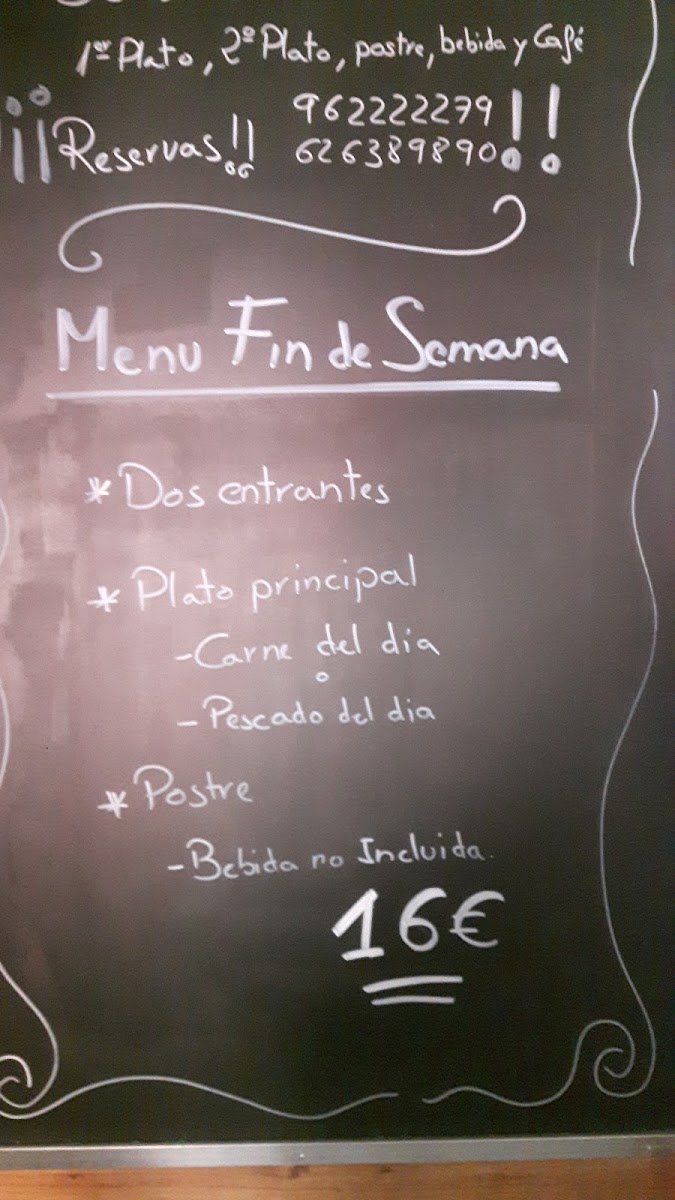 1er Plato, 2º Plato, postre, bebida y Café
¡¡Reservas!! 962222279!!
626389890
Menu Fin de Semana
* Dos entrantes
* Plato principal
- Carne del dia
o
- Pescado del dia
* Postre
- Bebida no Incluida.
16€